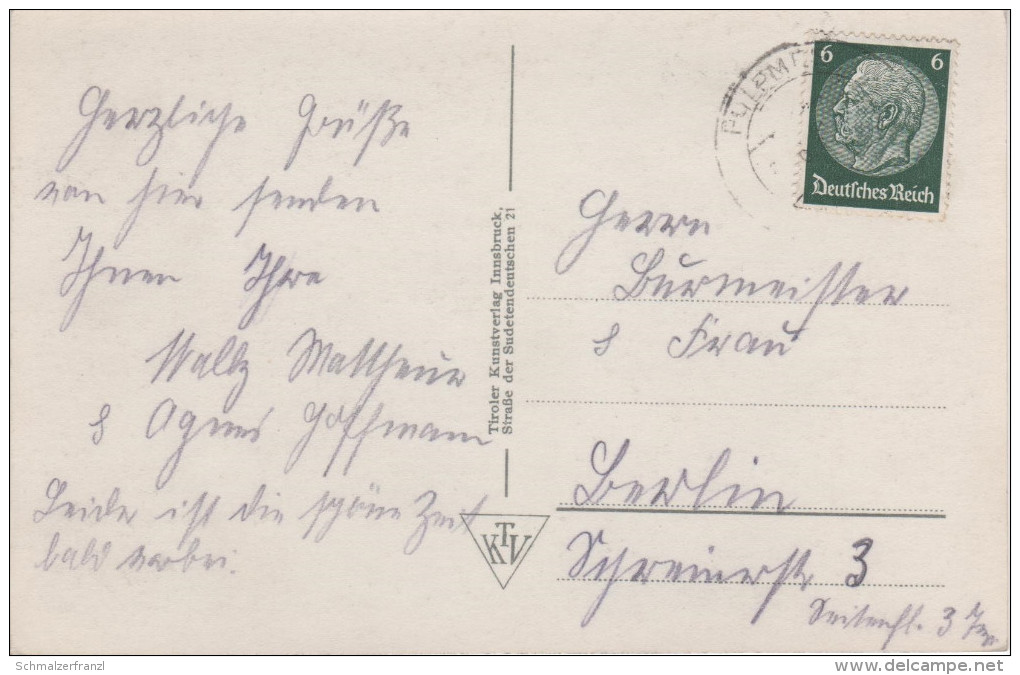 Herzliche Grüße
von hier senden
Ihnen Ihre
Mattheus
& Agnes Hoffmann
Leider ist die schöne Zeit
bald vorbei.
Tiroler Kunstverlag Innsbruck,
Straße der Sudetendeutschen 21
KTV
FULPME
6 6
Deutsches Reich
Herrn
Burmeister
& Frau
Berlin
Schreinerstr 3
Seitenfl. 3
Schmalzerfranzl
delcampe.net